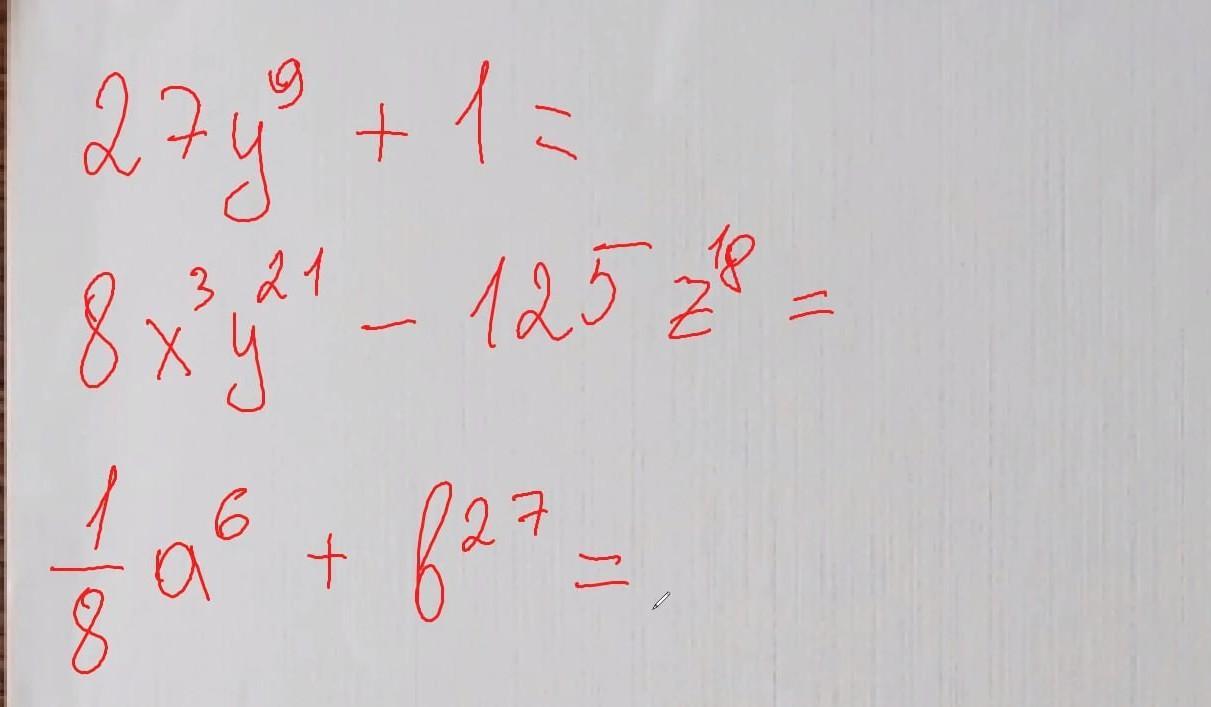 27y⁹ + 1 =
8x³y²¹ - 125z¹⁸ =
1/8 a⁶ + b²⁷ =